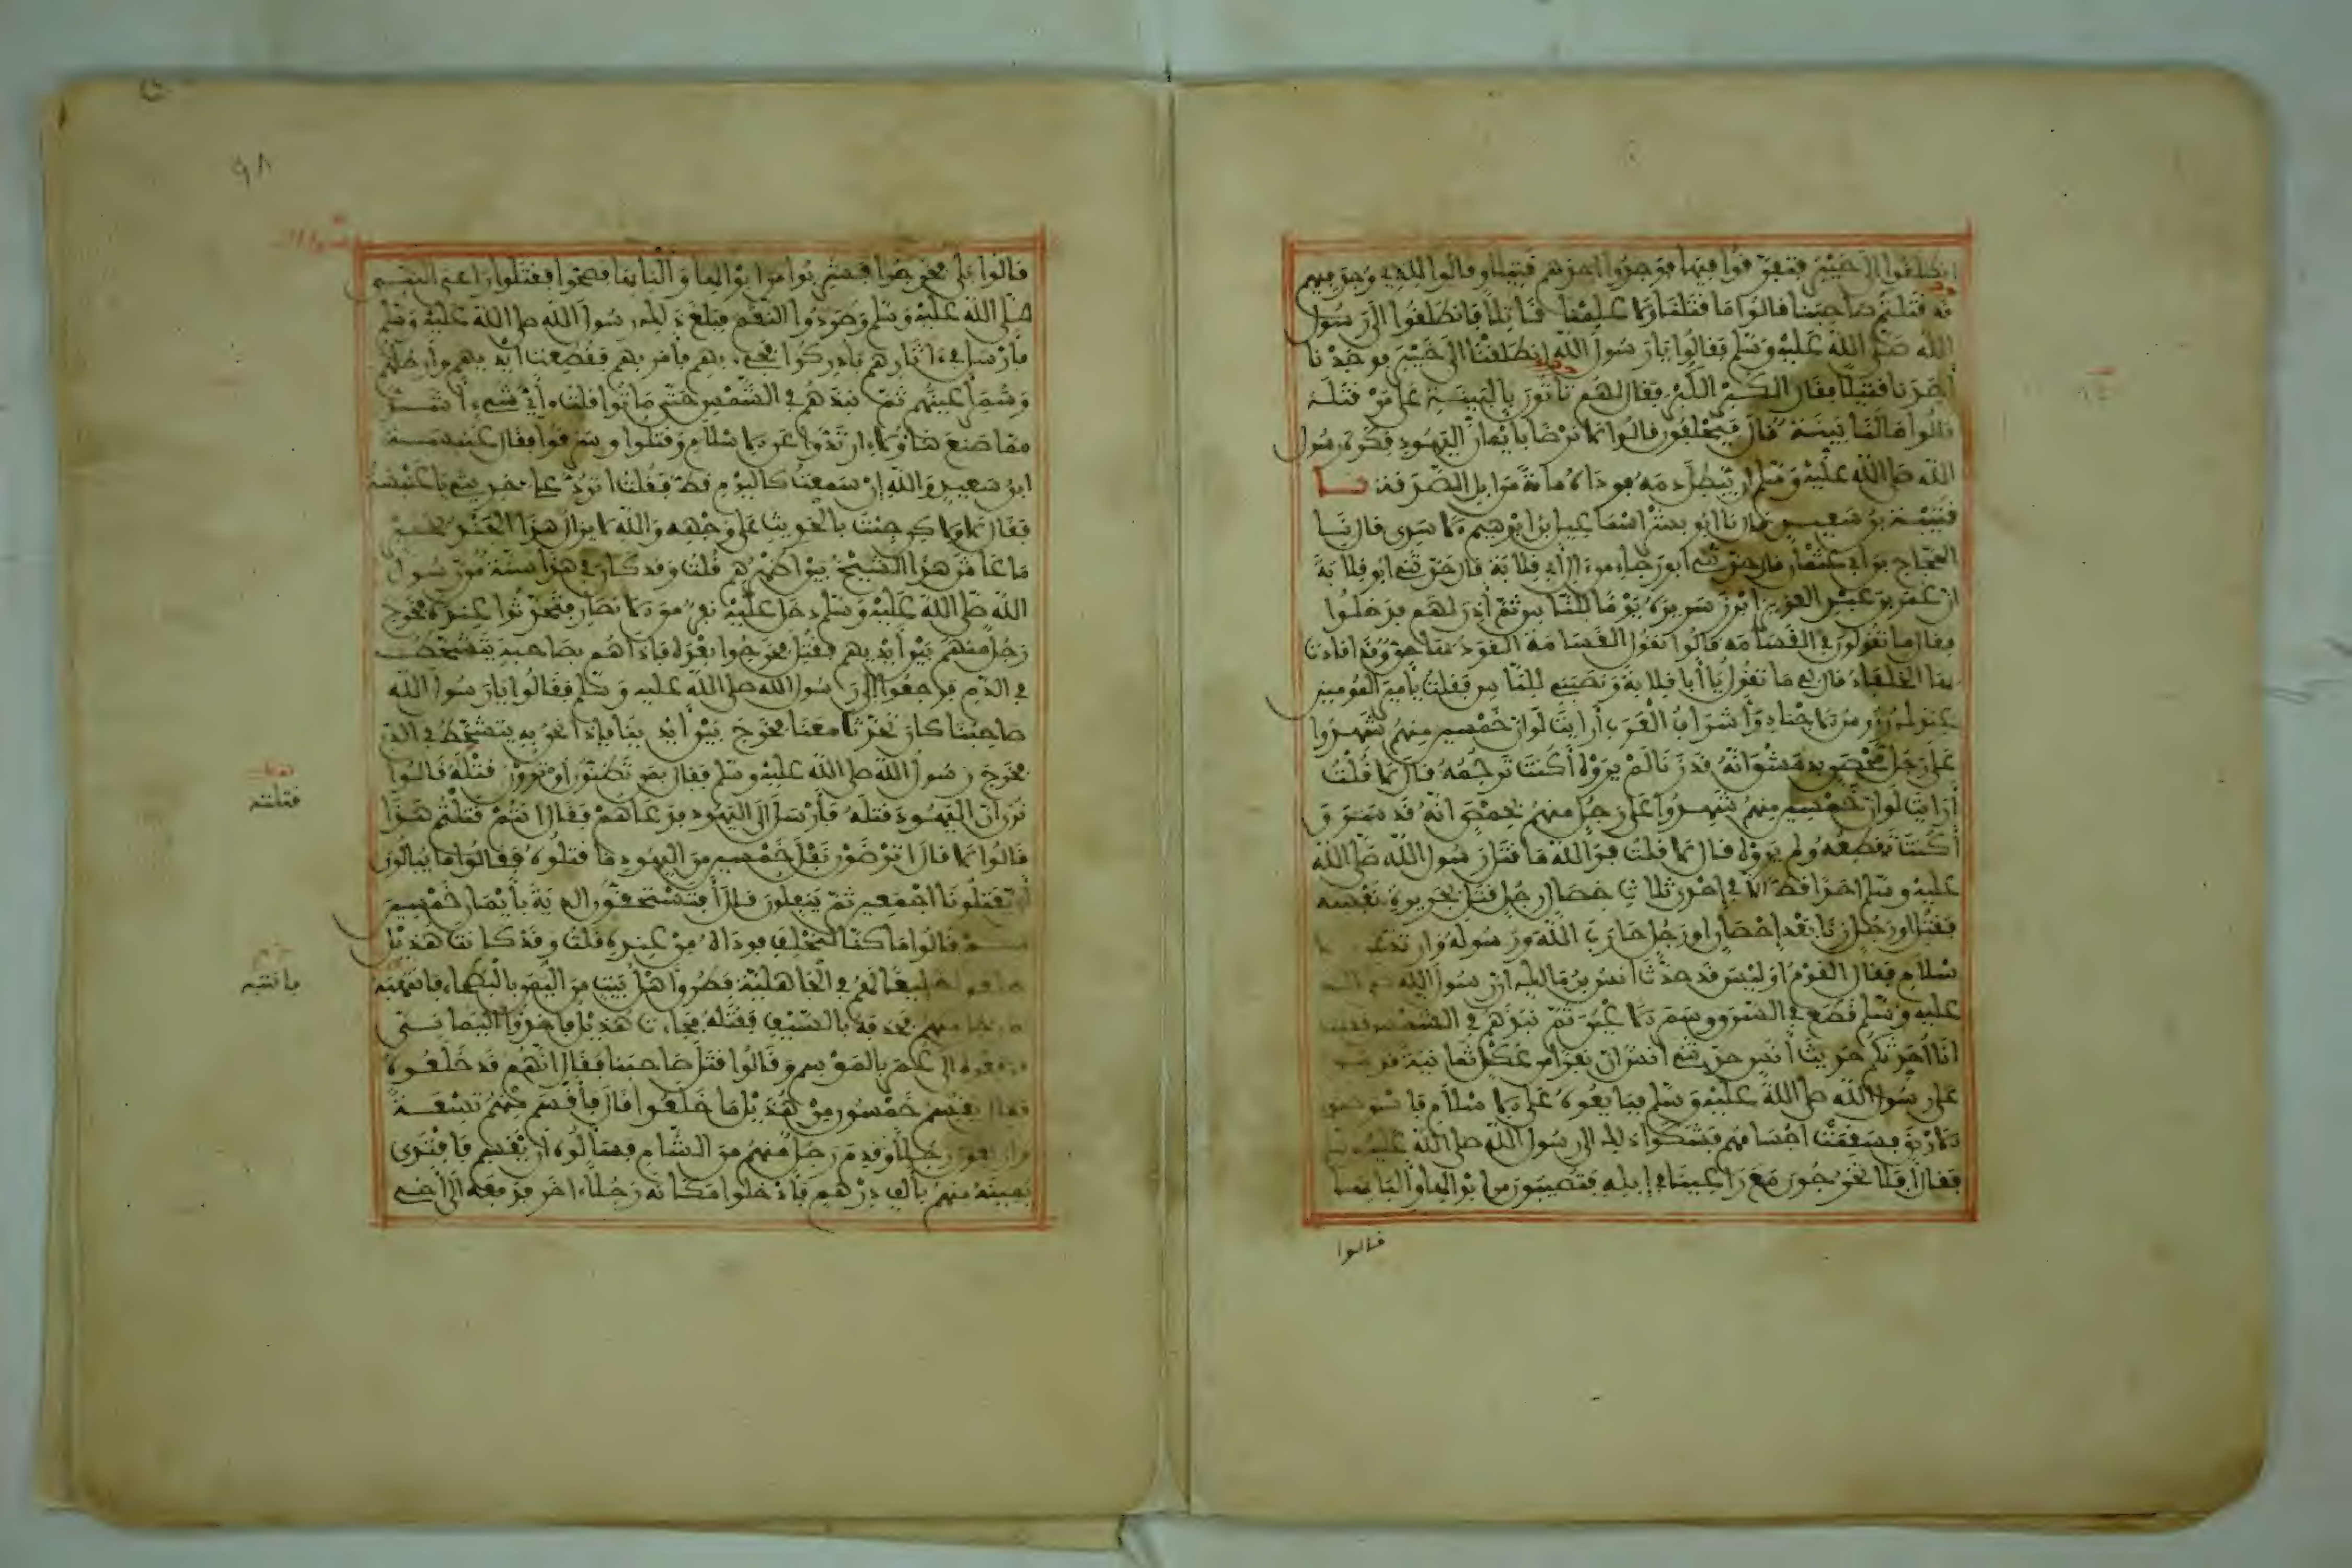 انطلقوا إلى خيبر فتفرقوا فيها فوجدوا أحدهم قتيلا وقالوا للذي وجد فيهم
قد قتلتم صاحبنا قالوا ما قتلنا ولا علمنا قاتلا فانطلقوا إلى رسول
الله صلى الله عليه وسلم فقالوا يا رسول الله انطلقنا إلى خيبر فوجدنا
أحدنا قتيلا فقال الكبر الكبر فقال لهم تأتون بالبينة على من قتله
قالوا ما لنا بينة قال فيحلفون قالوا لا نرضى بأيمان اليهود فكره رسول
الله صلى الله عليه وسلم أن يبطل دمه فوداه مائة من إبل الصدقة نا
قتيبة بن سعيد قال نا أبو بشر إسماعيل بن إبراهيم الأسدي قال نا
الحجاج بن أبي عثمان قال حدثني أبو رجاء من آل أبي قلابة قال حدثني أبو قلابة
أن عمر بن عبد العزيز أبرز سريره يوما للناس ثم أذن لهم فدخلوا
فقال ما تقولون في القسامة قالوا نقول القسامة القود بها حق وقد أقادت
بها الخلفاء قال لي ما تقول يا أبا قلابة ونصبني للناس فقلت يا أمير المومنين
عندك رؤوس الأجناد وأشراف العرب أرأيت لو أن خمسين منهم شهدوا
على رجل محصن بدمشق أنه قد زنا لم يروه أكنت ترجمه قال لا قلت
أرأيت لو أن خمسين منهم شهدوا على رجل منهم بحمص أنه قد سرق
أكنت تقطعه ولم يروه قال لا قلت فوالله ما قتل رسول الله صلى الله
عليه وسلم أحدا قط إلا في إحدى ثلاث خصال رجل قتل بجريرة نفسه
فقتل أو رجل زنا بعد إحصان أو رجل حارب الله ورسوله وارتد عن الا
سلام فقال القوم أوليس قد حدث أنس بن مالك أن رسول الله صلى الله
عليه وسلم قطع في السرق وسمر الأعين ثم نبذهم في الشمس فقلت
أنا أحدثكم حديث أنس حدثني أنس أن نفرا من عكل ثمانية قدموا
على رسول الله صلى الله عليه وسلم فبايعوه على الاسلام فاستوخموا
الأرض فسقمت أجسامهم فشكوا ذلك إلى رسول الله صلى الله عليه وسلم
فقال أفلا تخرجون مع راعينا في إبله فتصيبون من أبوالها وألبانها
قالوا
٩٨
قالوا بلى فخرجوا فشربوا من أبوالها وألبانها فصحوا فقتلوا راعي النبي
صلى الله عليه وسلم وطردوا النعم فبلغ ذلك رسول الله صلى الله عليه وسلم
فأرسل في ءاثارهم فأدركوا فجيء بهم فأمر بهم فقطعت أيديهم وأرجلهم
وسمر أعينهم ثم نبذهم في الشمس حتى ماتوا قلت وأي شيء أشد
مما صنع هاؤلاء ارتدوا عن الاسلام وقتلوا وسرقوا فقال عنبسة
ابن سعيد والله إن سمعت كاليوم قط فقلت أترد علي حديثي يا عنبسة
فقال لا ولاكن جئت بالحديث على وجهه والله لا يزال هذا الجند بخير
ما عاش هذا الشيخ بين أظهرهم قلت وقد كان في هذا سنة من رسول
الله صلى الله عليه وسلم دخل عليه نفر من الانصار فتحدثوا عنده فخرج
رجل منهم بين أيديهم فقتل فخرجوا بعده فإذا هم بصاحبهم يتشحط
في الدم فرجعوا إلى رسول الله صلى الله عليه وسلم فقالوا يا رسول الله
صاحبنا كان تحدث معنا فخرج بين أيدينا فإذا نحن به يتشحط في الدم
فخرج رسول الله صلى الله عليه وسلم فقال بمن تظنون أو ترون قتله قالوا
نرى أن اليهود قتله فأرسل إلى اليهود فدعاهم فقال أنتم قتلتم هذا
قالوا لا قال أترضون نفل خمسين من اليهود ما قتلوه فقالوا ما يبالون
أن يقتلونا أجمعين ثم ينفلون قال أفتستحقون الدية بأيمان خمسين
منكم قالوا ما كنا لنحلف فوداه من عنده قلت وقد كانت هذيل
خلعوا خليعا لهم في الجاهلية فطرق أهل بيت من اليمن بالبطحاء فانتبه
له رجل منهم فحذفه بالسيف فقتله فجاءت هذيل فأخذوا اليماني
فرفعوه إلى عمر بالموسم وقالوا قتل صاحبنا فقال إنهم قد خلعوه
فقال يقسم خمسون من هذيل ما خلعوا قال فأقسم منهم تسعة
وأربعون رجلا وقدم رجل منهم من الشام فسألوه أن يقسم فافتدى
يمينه منهم بألف درهم فأدخلوا مكانه رجلا ءاخر فدفعه إلى أخي
قتلته
فانتبه